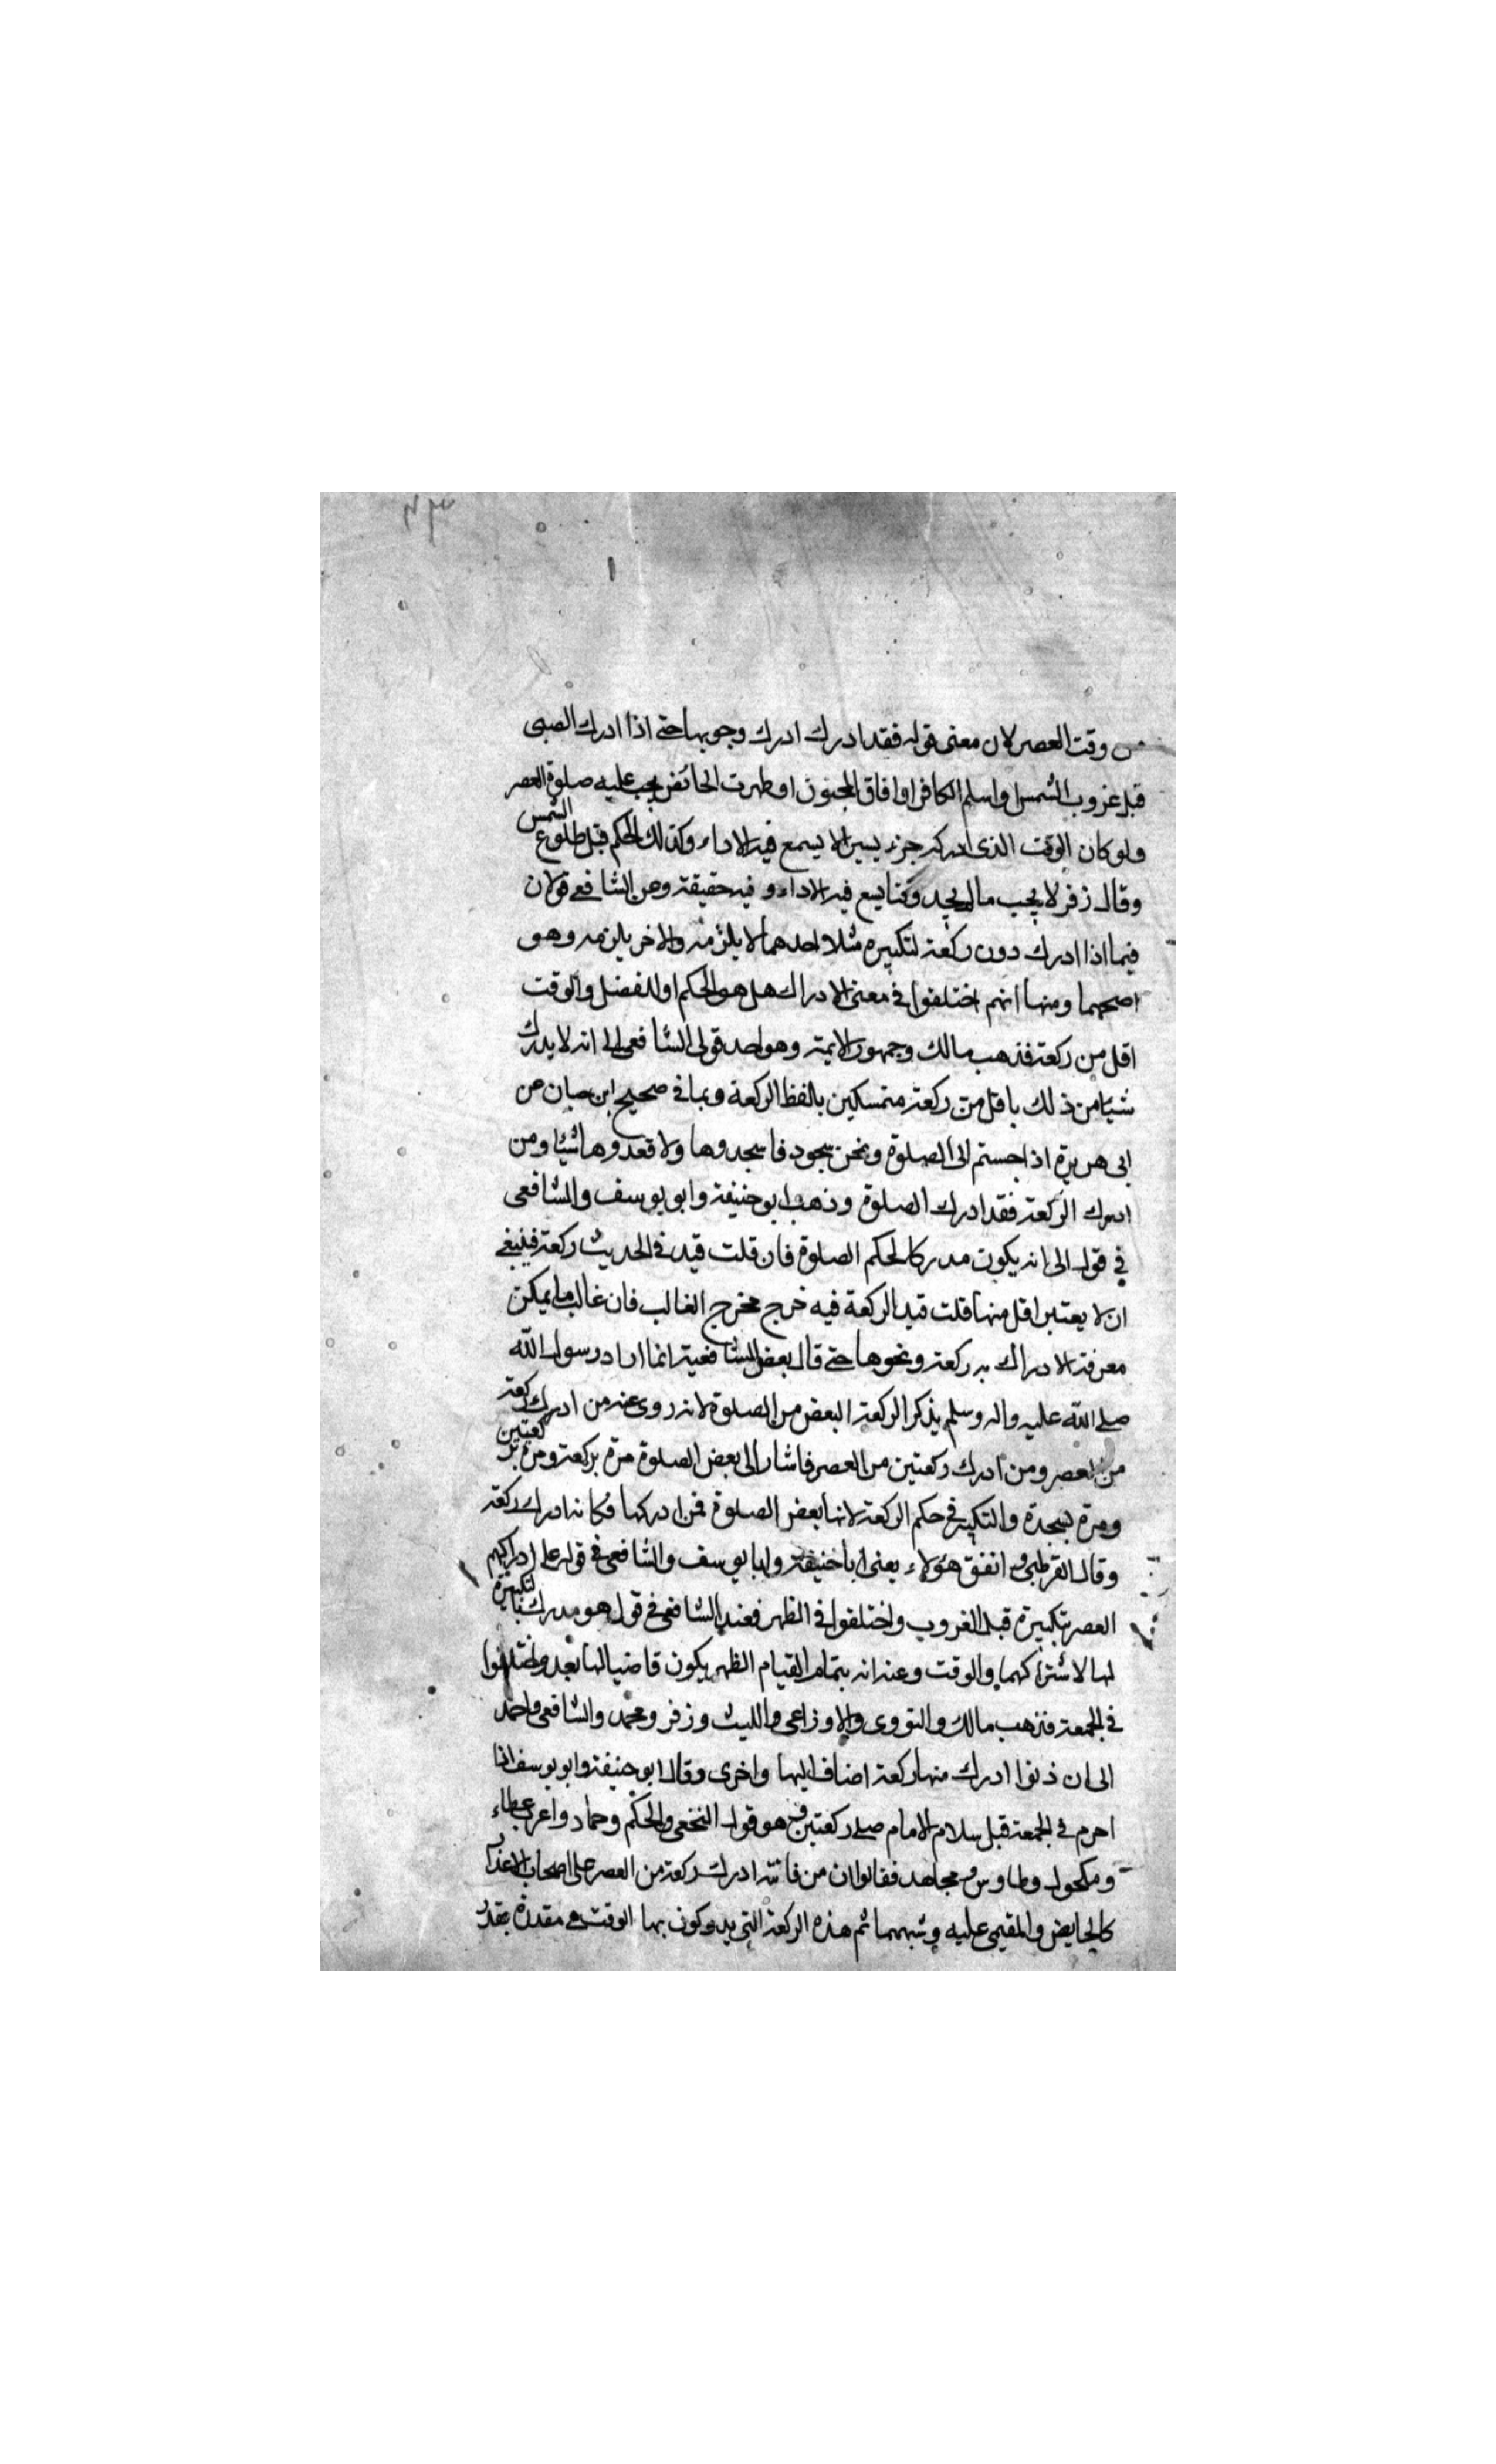 من وقت العصر لان معنى قوله فقد ادرك ادرك وجوبها حتى اذا ادرك الصبى
قبل غروب الشمس او اسلم الكافر او افاق المجنون او طهرت الحائض يجب عليه صلوة العصر
ولو كان الوقت الذى ادركه جزء يسيرا لا يسمع فيه الاداء وكذلك الحكم قبل طلوع الشمس
وقال زفر لا يجب مالم يجد وقتا يسع فيه الاداء و فيه حقيقة وعن الشافعى قولان
فيما اذا ادرك دون ركعة لتكبيره مثلا احدهما لا يلزمه والاخر يلزمه وهو
اصحهما ومنها انهم اختلفوا فى معنى الادراك هل هو الحكم او للفضل والوقت
اقل من ركعة فذهب مالك وجمهور الايمة وهو احد قولى الشافعى الى انه لا يدرك
شيئا من ذلك باقل من ركعة متمسكين بالفظ الركعة وبما فى صحيح ابن حبان عن
ابى هريرة اذا جستم الى الصلوة ونحن سجود فاسجدوها ولا تعدوها شيئا ومن
ادرك الركعة فقد ادرك الصلوة وذهب ابو حنيفة وابو يوسف والشافعى
فى قول الى انه يكون مدركا لحكم الصلوة فان قلت قيد فى الحديث ركعة فينبغى
ان لا يعتبر اقل منها قلت قيد الركعة فيه خرج مخرج الغالب فان غالب ما يمكن
معرفة الادراك به ركعة ونحوها حتى قال بعض الشافعية انما اراد رسول الله
صلى الله عليه واله وسلم بذكر الركعة البعض من الصلوة لانه روى عنه من ادرك ركعة
من العصر ومن ادرك ركعتين من العصر فاشار الى بعض الصلوة مرة بركعة ومرة بركعتين
ومرة بسجدة والتكبير فى حكم الركعة لانها بعض الصلوة فمن ادركها فكانه ادرك ركعة
وقال القرطبى و اتفق هؤلاء يعنى ابا حنيفة وابا يوسف والشافعى فى قول على ادراكهم
العصر بتكبيرة قبل الغروب واختلفوا فى الظهر فعند الشافعى فى قول هو مدرك بالتكبيرة
لها لاشتراكهما والوقت وعنه انه بتمام القيام الظهر يكون قاضيا لها بعد واختلفوا
فى الجمعة فذهب مالك والثورى والاوزاعى والليث وزفر ومحمد والشافعى واحمد
الى ان ادرك منها ركعة اضاف اليها واخرى وقال ابو حنيفة وابو يوسف اذا
احرم فى الجمعة قبل سلام الامام صلى ركعتين هو قول النخعى والحكم وحماد واغرب عطاء
ومكحول وطاوس و مجاهد فقالوا ان من فاتته ادرك ركعة من العصر على اصحاب الاعذار
كالحايض والمغمى عليه وشبههما ثم هذه الركعة التى يدركون بها الوقت هى مقدرة بقدر